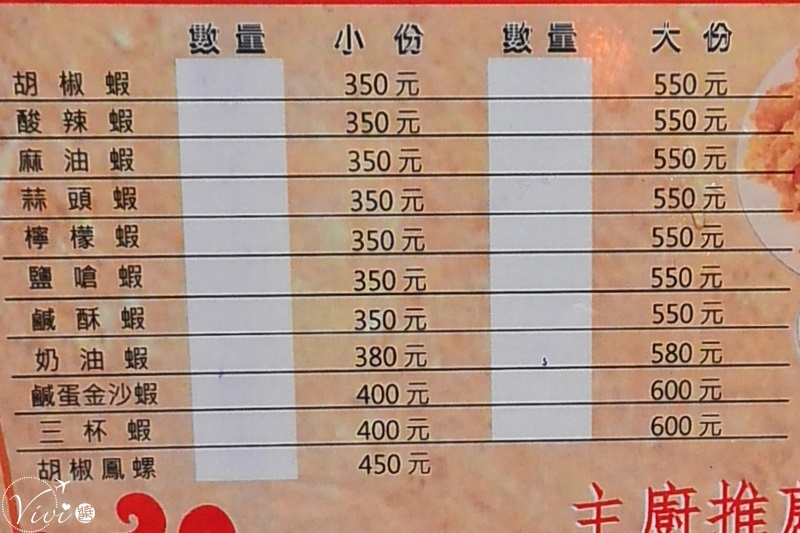 數量 小份 數量 大份
胡椒蝦 350元 550元
酸辣蝦 350元 550元
麻油蝦 350元 550元
蒜頭蝦 350元 550元
檸檬蝦 350元 550元
鹽嗆蝦 350元 550元
鹹酥蝦 350元 550元
奶油蝦 380元 580元
鹹蛋金沙蝦 400元 600元
三杯蝦 400元 600元
胡椒鳳螺 450元
主廚推薦
Vivi